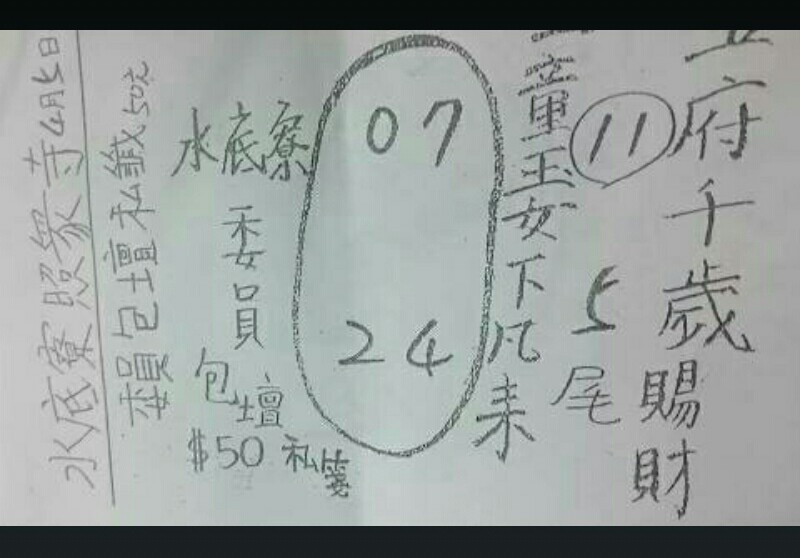 五府千歲賜財
11
5尾
金童玉女下凡来
07
24
水底寮
委員
包壇
$50 私箋
委員包壇私籤50元
水底寮照眾寺4月5日